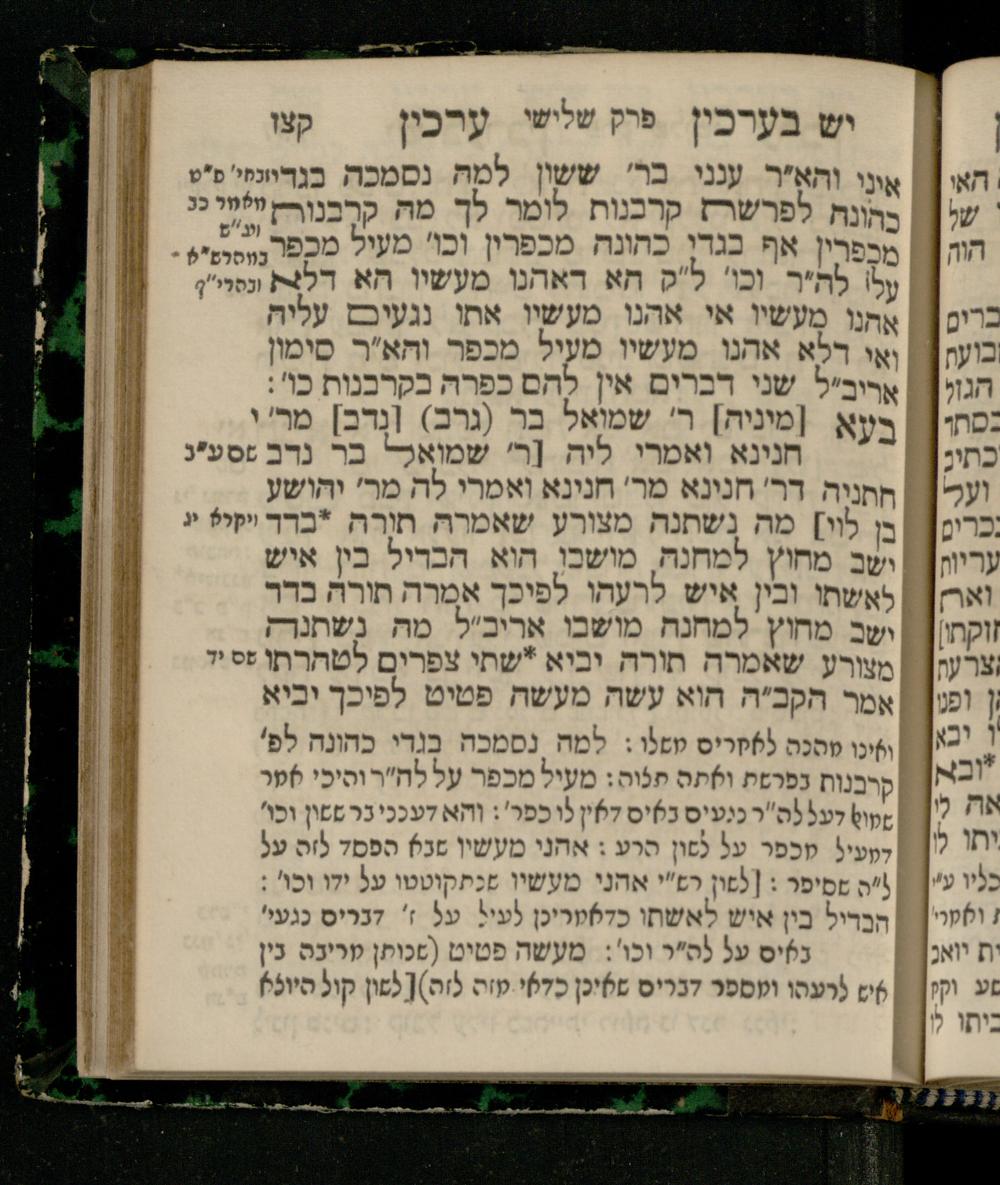 יש בערכין פרק שלישי ערכין קצו
איני והא״ר ענני בר׳ ששון למה נסמכה בגדי
כהונה לפרשת קרבנות לומר לך מה קרבנות
מכפרין אף בגדי כהונה מכפרין וכו׳ מעיל מכפר
על לה״ר וכו׳ ל״ק הא דאהנו מעשיו הא דלא
אהנו מעשיו אי אהנו מעשיו אתו נגעים עליה
ואי דלא אהנו מעשיו מעיל מכפר והא״ר סימון
אריב״ל שני דברים אין להם כפרה בקרבנות כו׳:
בעא [מיניה] ר׳ שמואל בר (גרב) [נדב] מר׳ י
חנינא ואמרי ליה [ר׳ שמואל בר נדב
חתניה דר׳ חנינא מר׳ חנינא ואמרי לה מר׳ יהושע
בן לוי] מה נשתנה מצורע שאמרה תורה *בדד
ישב מחוץ למחנה מושבו הוא הבדיל בין איש
לאשתו ובין איש לרעהו לפיכך אמרה תורה בדד
ישב מחוץ למחנה מושבו אריב״ל מה נשתנה
מצורע שאמרה תורה יביא *שתי צפרים לטהרתו
אמר הקב״ה הוא עשה מעשה פטיט לפיכך יביא
זבחי׳ פ״ט
מאמר כב
ויע״ש
במהרש״א
ובהרי״ף
שס ע״ב
ויקרא יג
שס יד
ואינו מהכה לאחרים משלו: למה נסמכה בגדי כהונה לפ׳
קרבנות בפרשת ואתה תצוה: מעיל מכפר על לה״ר והיכי אמר
שמוא׳ דעל לה״ר נגעים באים דאין לו כפר׳: והא דענני בר ששון וכו׳
דמעיל מכפר על לשון הרע: אהני מעשיו שבא הפסד לזה על
ל״ה שסיפר: [לשון רש״י אהני מעשיו שנתקוטטו על ידו וכו׳:
הבדיל בין איש לאשתו כדאמרינן לעיל על ז׳ דברים נגעי׳
באים על לה״ר וכו׳: מעשה פטיט (שנותן מריבה בין
איש לרעהו ומספר דברים שאינן כדאי מזה לזה) [לשון קול היוצא